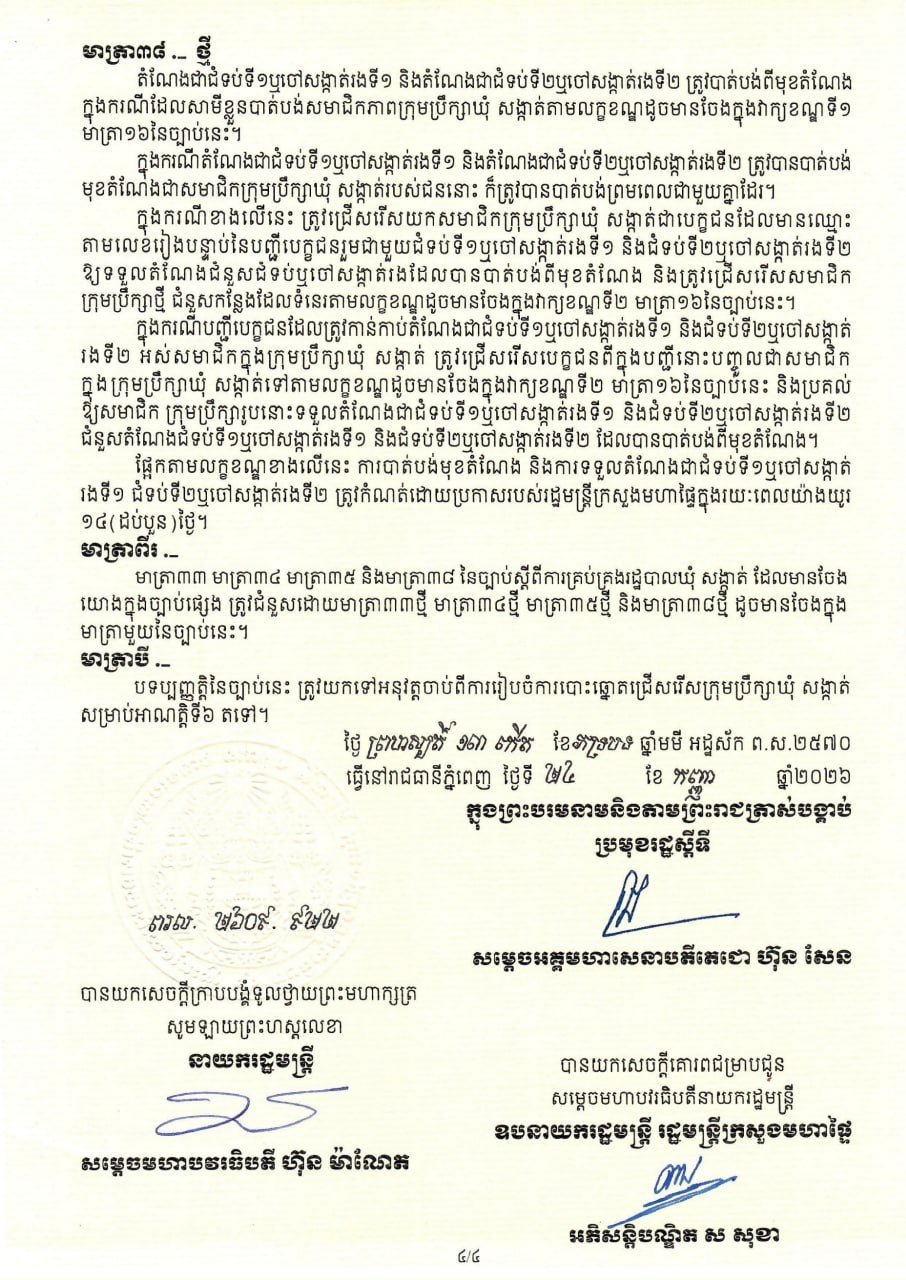 មាត្រា៣៨ ._ ថ្មី
តំណែងជាជំទប់ទី១ឬចៅសង្កាត់រងទី១ និងតំណែងជាជំទប់ទី២ឬចៅសង្កាត់រងទី២ ត្រូវបាត់បង់ពីមុខតំណែង
ក្នុងករណីដែលសាមីខ្លួនបាត់បង់សមាជិកភាពក្រុមប្រឹក្សាឃុំ សង្កាត់តាមលក្ខខណ្ឌដូចមានចែងក្នុងវាក្យខណ្ឌទី១
មាត្រា១៦នៃច្បាប់នេះ។
ក្នុងករណីតំណែងជាជំទប់ទី១ឬចៅសង្កាត់រងទី១ និងតំណែងជាជំទប់ទី២ឬចៅសង្កាត់រងទី២ ត្រូវបានបាត់បង់
មុខតំណែងជាសមាជិកក្រុមប្រឹក្សាឃុំ សង្កាត់របស់ជននោះ ក៏ត្រូវបានបាត់បង់ព្រមពេលជាមួយគ្នាដែរ។
ក្នុងករណីខាងលើនេះ ត្រូវជ្រើសរើសយកសមាជិកក្រុមប្រឹក្សាឃុំ សង្កាត់ជាបេក្ខជនដែលមានឈ្មោះ
តាមលេខរៀងបន្ទាប់នៃបញ្ជីបេក្ខជនរួមជាមួយជំទប់ទី១ឬចៅសង្កាត់រងទី១ និងជំទប់ទី២ឬចៅសង្កាត់រងទី២
ឱ្យទទួលតំណែងជំនួសជំទប់ឬចៅសង្កាត់រងដែលបានបាត់បង់ពីមុខតំណែង និងត្រូវជ្រើសរើសសមាជិក
ក្រុមប្រឹក្សាថ្មី ជំនួសកន្លែងដែលទំនេរតាមលក្ខខណ្ឌដូចមានចែងក្នុងវាក្យខណ្ឌទី២ មាត្រា១៦នៃច្បាប់នេះ។
ក្នុងករណីបញ្ជីបេក្ខជនដែលត្រូវកាន់កាប់តំណែងជាជំទប់ទី១ឬចៅសង្កាត់រងទី១ និងជំទប់ទី២ឬចៅសង្កាត់
រងទី២ អស់សមាជិកក្នុងក្រុមប្រឹក្សាឃុំ សង្កាត់ ត្រូវជ្រើសរើសបេក្ខជនពីក្នុងបញ្ជីនោះបញ្ចូលជាសមាជិក
ក្នុងក្រុមប្រឹក្សាឃុំ សង្កាត់ទៅតាមលក្ខខណ្ឌដូចមានចែងក្នុងវាក្យខណ្ឌទី២ មាត្រា១៦នៃច្បាប់នេះ និងប្រគល់
ឱ្យសមាជិក ក្រុមប្រឹក្សារូបនោះទទួលតំណែងជាជំទប់ទី១ឬចៅសង្កាត់រងទី១ និងជំទប់ទី២ឬចៅសង្កាត់រងទី២
ជំនួសតំណែងជំទប់ទី១ឬចៅសង្កាត់រងទី១ និងជំទប់ទី២ឬចៅសង្កាត់រងទី២ ដែលបានបាត់បង់ពីមុខតំណែង។
ផ្អែកតាមលក្ខខណ្ឌខាងលើនេះ ការបាត់បង់មុខតំណែង និងការទទួលតំណែងជាជំទប់ទី១ឬចៅសង្កាត់
រងទី១ ជំទប់ទី២ឬចៅសង្កាត់រងទី២ ត្រូវកំណត់ដោយប្រកាសរបស់រដ្ឋមន្ត្រីក្រសួងមហាផ្ទៃក្នុងរយៈពេលយ៉ាងយូរ
១៤(ដប់បួន)ថ្ងៃ។
មាត្រាពីរ ._
មាត្រា៣៣ មាត្រា៣៤ មាត្រា៣៥ និងមាត្រា៣៨ នៃច្បាប់ស្តីពីការគ្រប់គ្រងរដ្ឋបាលឃុំ សង្កាត់ ដែលមានចែង
យោងក្នុងច្បាប់ផ្សេង ត្រូវជំនួសដោយមាត្រា៣៣ថ្មី មាត្រា៣៤ថ្មី មាត្រា៣៥ថ្មី និងមាត្រា៣៨ថ្មី ដូចមានចែងក្នុង
មាត្រាមួយនៃច្បាប់នេះ។
មាត្រាបី ._
បទប្បញ្ញត្តិនៃច្បាប់នេះ ត្រូវយកទៅអនុវត្តចាប់ពីការរៀបចំការបោះឆ្នោតជ្រើសរើសក្រុមប្រឹក្សាឃុំ សង្កាត់
សម្រាប់អាណត្តិទី៦ តទៅ។
ថ្ងៃ ព្រហស្បតិ៍ ១៣ កើត ខែភទ្របទ ឆ្នាំមមី អដ្ឋស័ក ព.ស.២៥៧០
ធ្វើនៅរាជធានីភ្នំពេញ ថ្ងៃទី ២៤ ខែ កញ្ញា ឆ្នាំ២០២៦
ក្នុងព្រះបរមនាមនិងតាមព្រះរាជត្រាស់បង្គាប់
ប្រមុខរដ្ឋស្តីទី
ពរល. ២៦០៩. ៩២២
សម្តេចអគ្គមហាសេនាបតីតេជោ ហ៊ុន សែន
បានយកសេចក្តីក្រាបបង្គំទូលថ្វាយព្រះមហាក្សត្រ
សូមឡាយព្រះហស្តលេខា
នាយករដ្ឋមន្ត្រី
សម្តេចមហាបវរធិបតី ហ៊ុន ម៉ាណែត
បានយកសេចក្តីគោរពជម្រាបជូន
សម្តេចមហាបវរធិបតីនាយករដ្ឋមន្ត្រី
ឧបនាយករដ្ឋមន្ត្រី រដ្ឋមន្ត្រីក្រសួងមហាផ្ទៃ
អភិសន្តិបណ្ឌិត ស សុខា
៤/៤